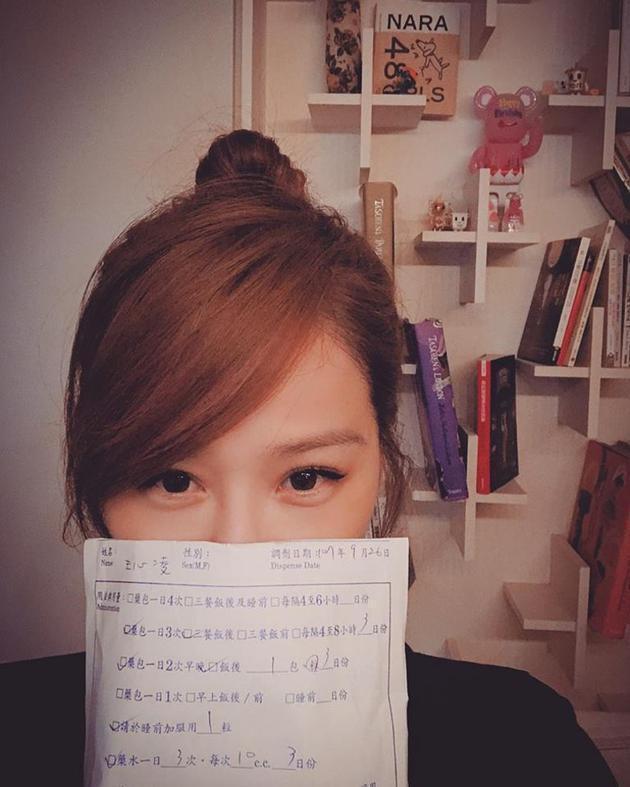 NARA
48
GIRLS
Happy
Birthday
TASCHEN'S LONDON
姓名： 性別： 調劑日期 107年9月26日
Name 王心凌 Sex(M,F) Dispense Date
□藥包一日4次□三餐飯後及睡前□每隔4至6小時__日份
Administration
☑藥包一日3次☑三餐飯後□三餐飯前□每隔4至8小時3日份
☑藥包一日2次早晚□飯後 1 包 3日份
□藥包一日1次□早上飯後/前 □睡前__日份
☑請於睡前加服用 1 粒
☑藥水一日 3 次．每次 10 c.c. 3 日份